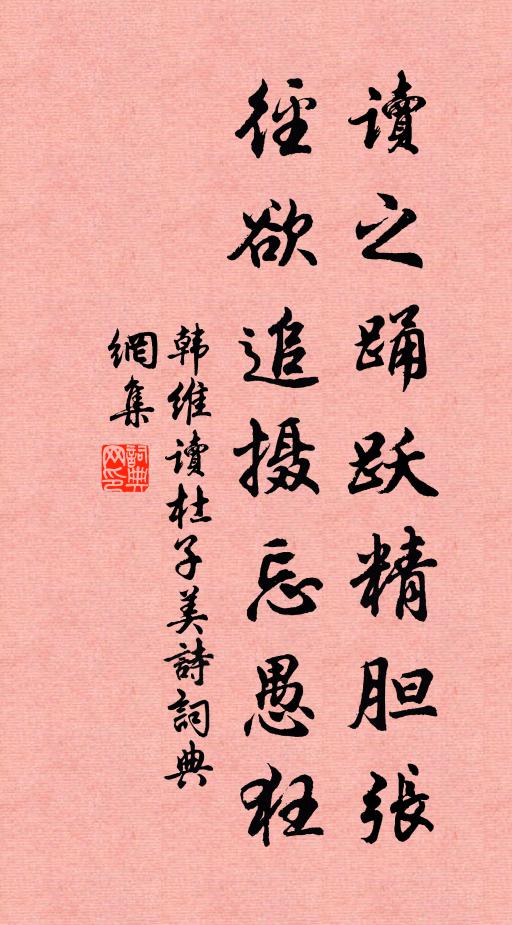 读之踊跃精胆張
径欲追摄忘愚狂
韩维读杜子美詩詞典
網集
詞典
网印